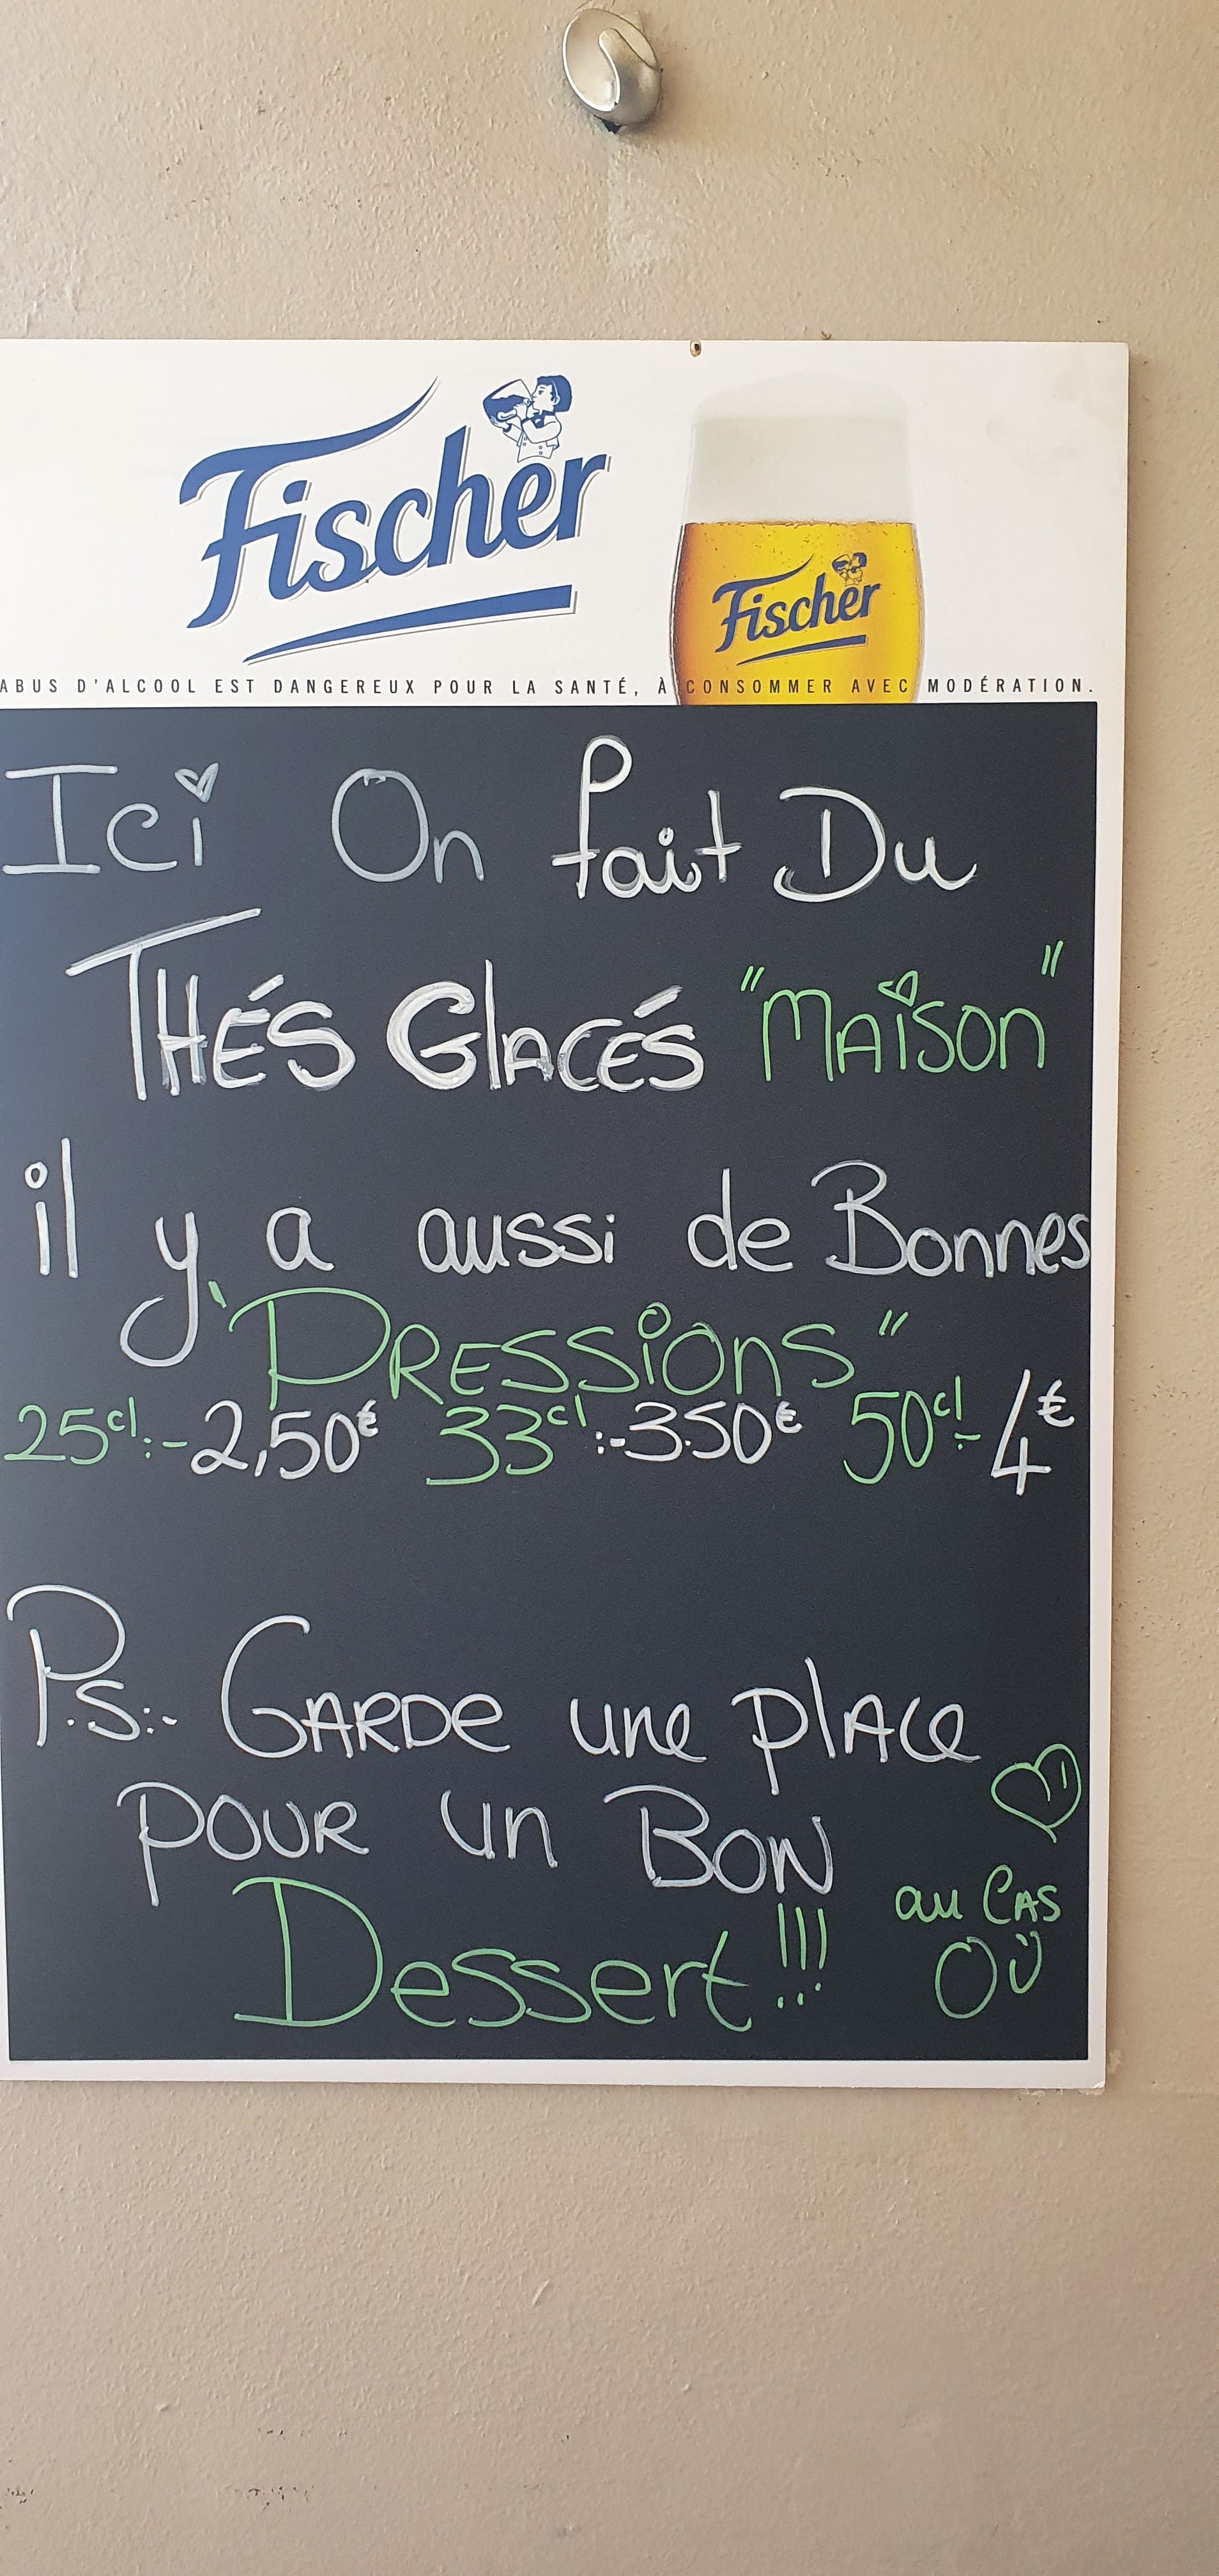 Fischer
Fischer
ABUS D'ALCOOL EST DANGEREUX POUR LA SANTÉ, À CONSOMMER AVEC MODÉRATION.
Ici On fait Du
THÉS GlACÉS "MAiSon"
il y a aussi de Bonnes
"PRESSiOnS"
25cl:- 2,50€ 33cl:- 3.50€ 50cl:- 4€
P.S:- GARDe une plACe
pOUR un BON
Dessert!!!
au CAS
Où